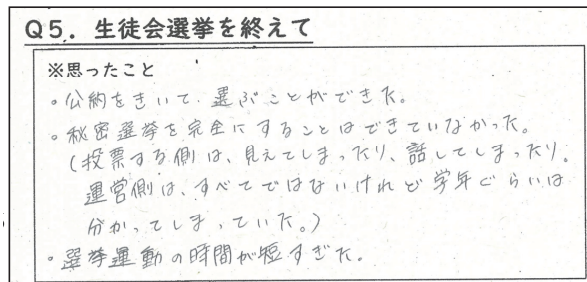 Q5．生徒会選挙を終えて
※思ったこと
。公約をきいて、選ぶことができた。
。秘密選挙を完全にすることはできていなかった。
(投票する側は、見えてしまったり、話してしまったり。
運営側は、すべてではないけれど学年ぐらいは
分かってしまっていた。)
。選挙運動の時間が短すぎた。